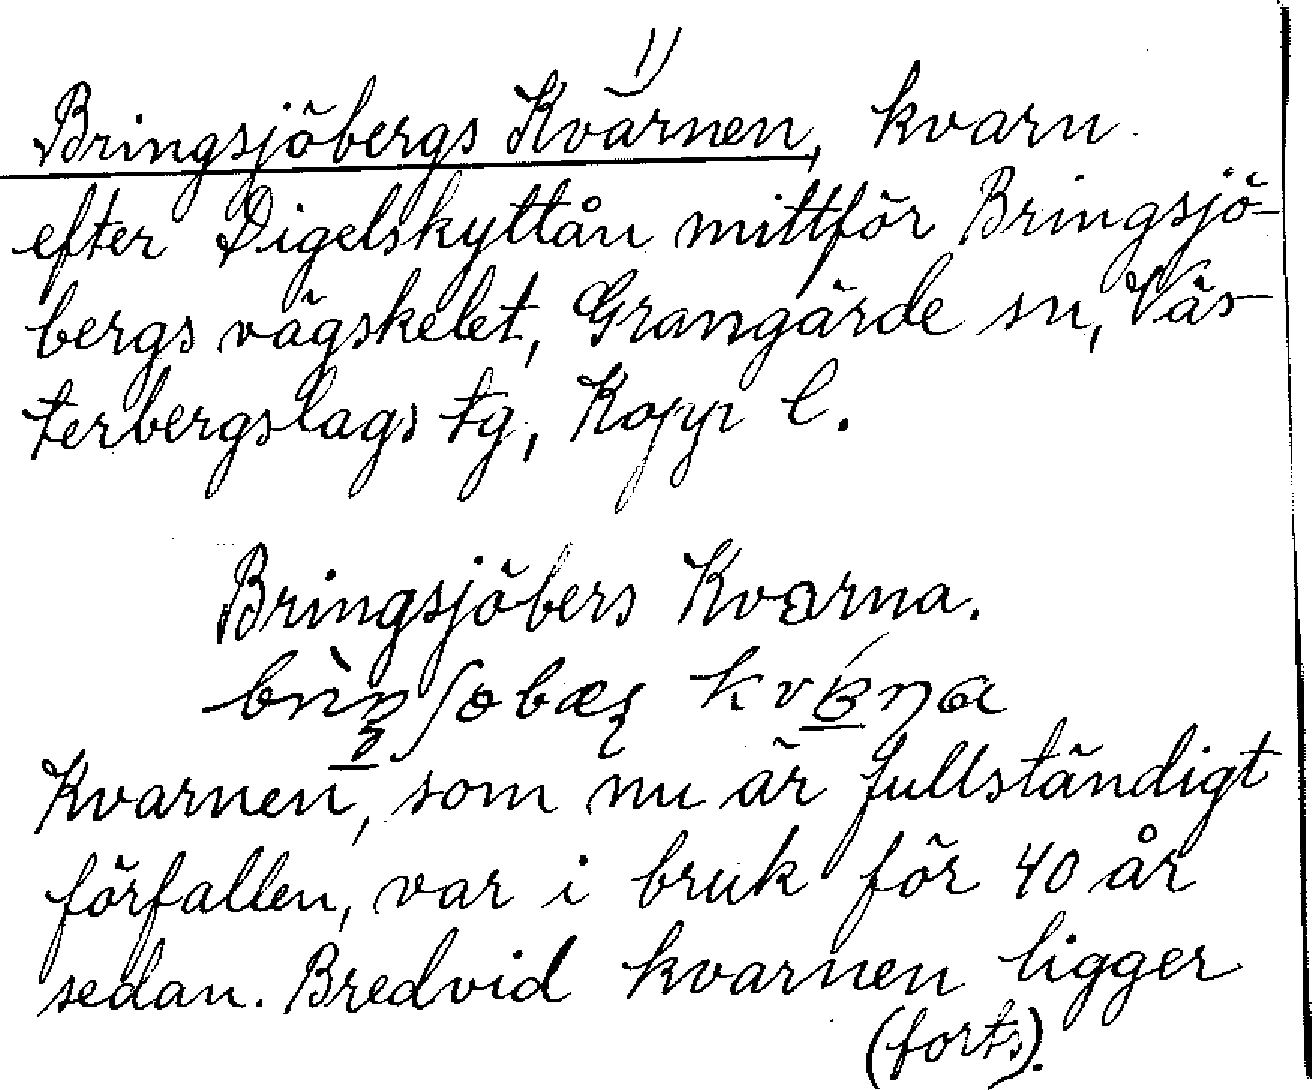 1)
Bringsjöbergs Kvarnen, kvarn
efter Digelskyttån mittför Bringsjö-
bergs vägskelet, Grangärde sn, Väs-
terbergslags tg, Kopp l.
Bringsjöbers Kvarna.
Kvarnen, som nu är fullständigt
förfallen, var i bruk för 40 år
sedan. Bredvid kvarnen ligger
(forts).